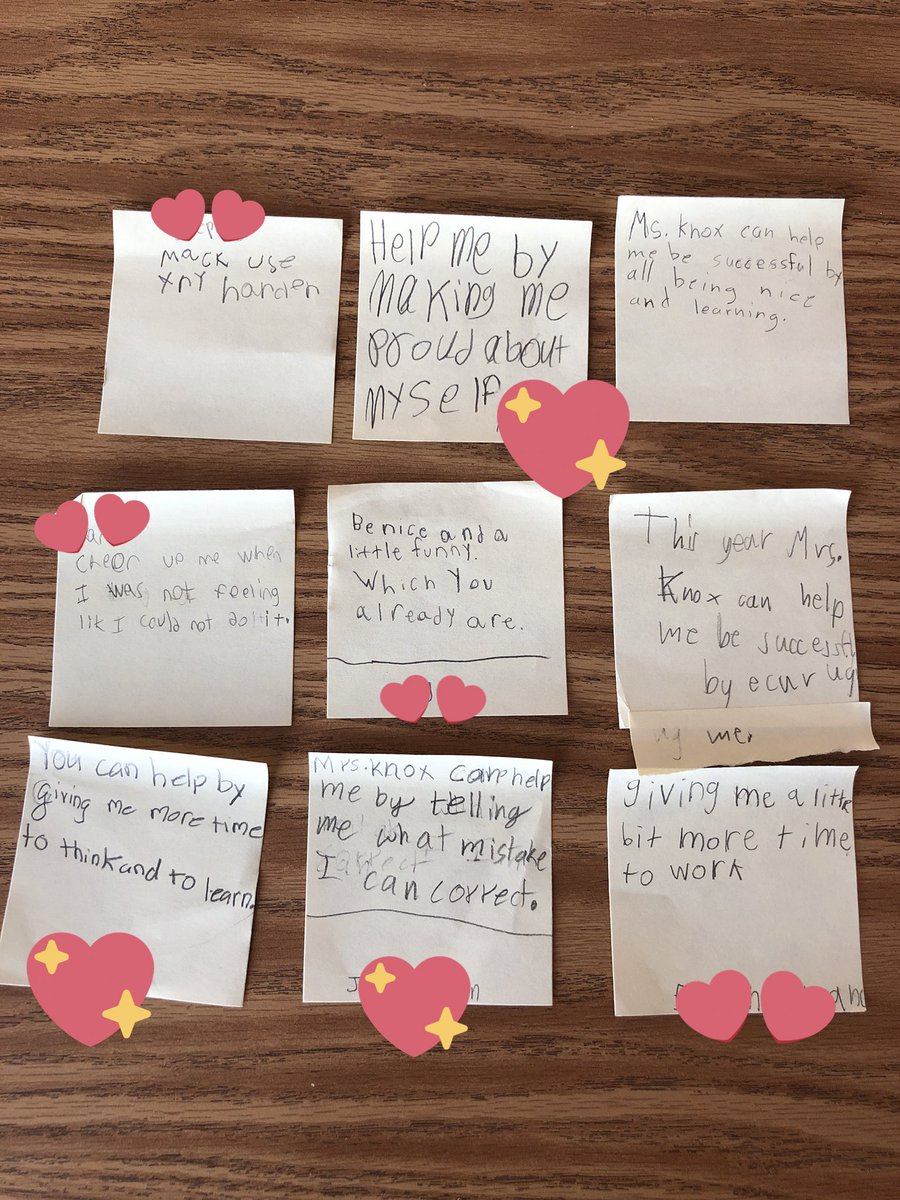 mack use
xny harder
Help me by
making me
proud about
myself
Ms. Knox can help
me be successful by
all being nice
and learning.
cheer up me when
I was not feeling
lik I could not do it.
Be nice and a
little funny.
Which you
already are.
This year Mrs.
Knox can help
me be successfu
by ecur ug
ug me.
You can help by
Giving me more time
to think and to learn.
Mrs. Knox can help
me by telling
me what mistake
I can correct.
giving me a little
bit more time
to work